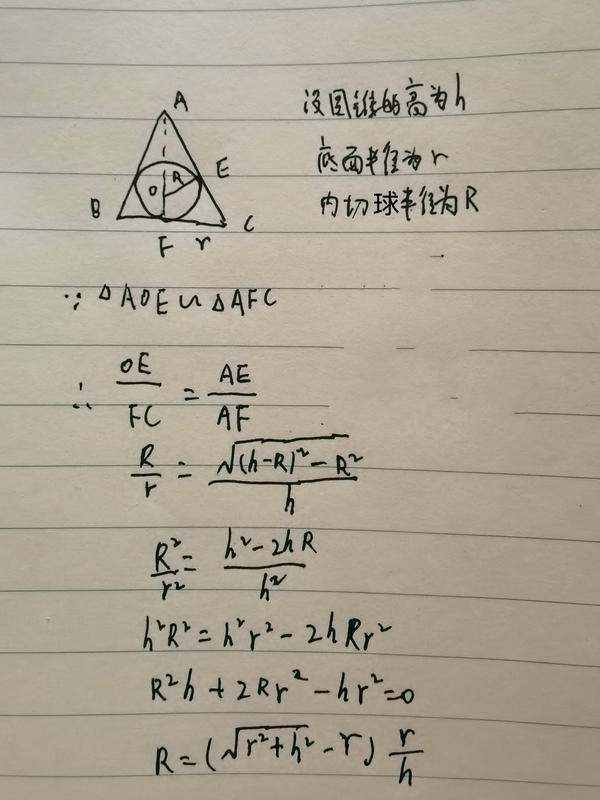 A
设圆锥的高为h
E
R
O
底面半径为r
B
内切球半径为R
C
F r
∵ △AOE ∽ △AFC
∴ OE/FC = AE/AF
R/r = √((h-R)²-R²)/h
R²/r² = (h²-2hR)/h²
h²R² = h²r² - 2hRr²
R²h + 2Rr² - hr² = 0
R = (√(r²+h²) - r) r/h